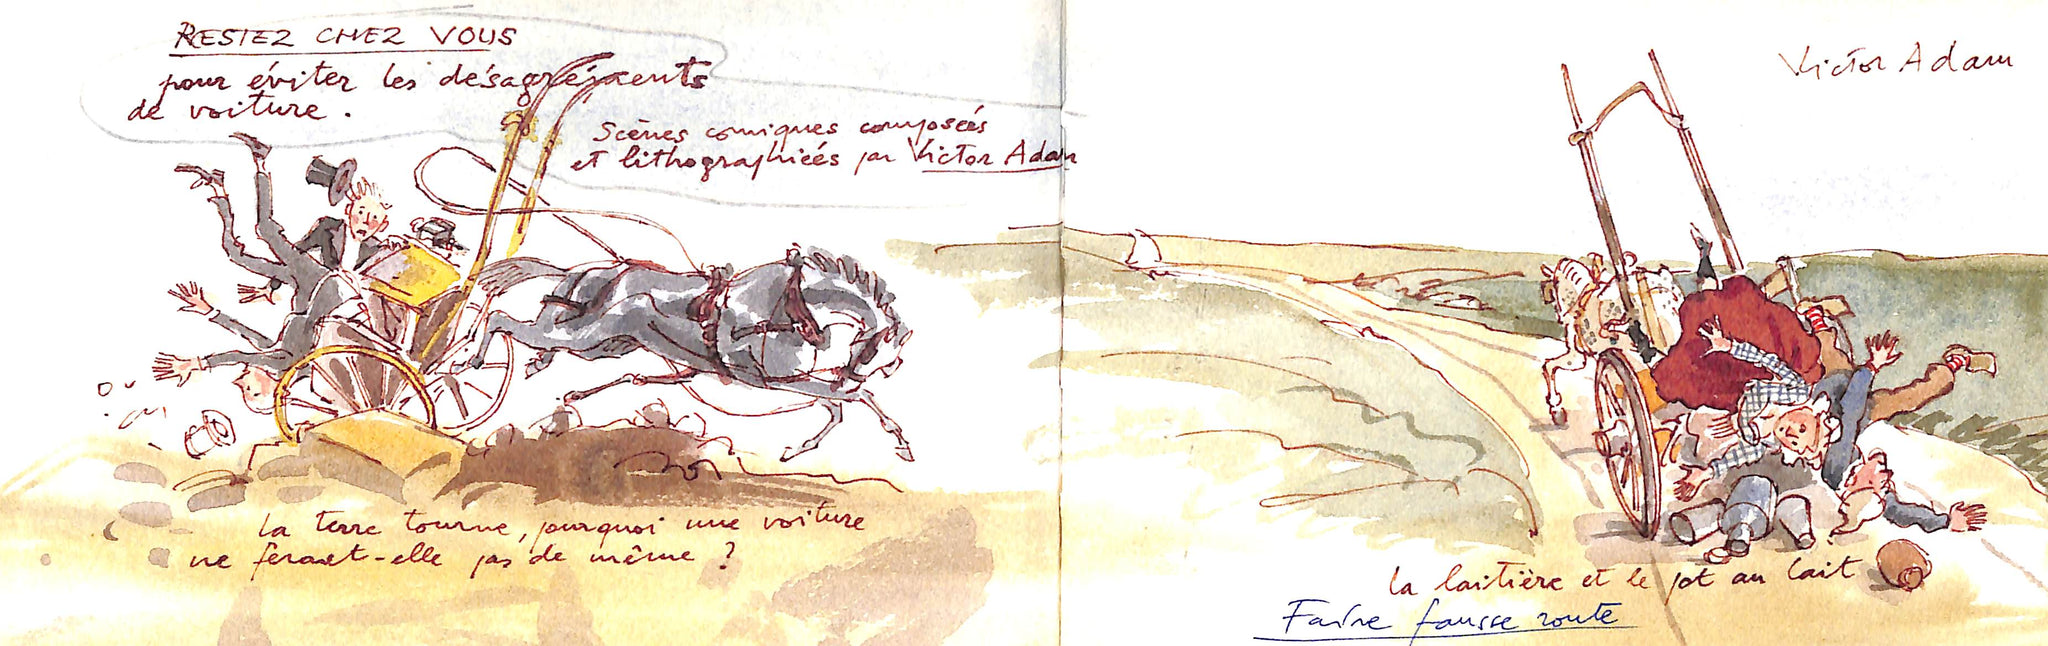 RESTEZ CHEZ VOUS
pour éviter les désagréments
de voiture.
Scènes comiques composées
et lithographiées par Victor Adam
la terre tourne, pourquoi une voiture
ne ferait-elle pas de même ?
Victor Adam
la laitière et le pot au lait
Faire fausse route